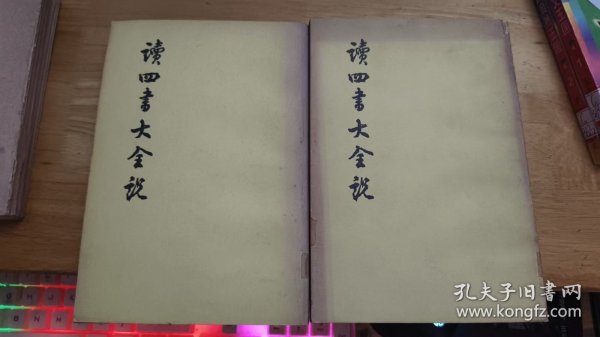 讀四書大全說
讀四書大全說
孔夫子旧書网
www.kongfz.com